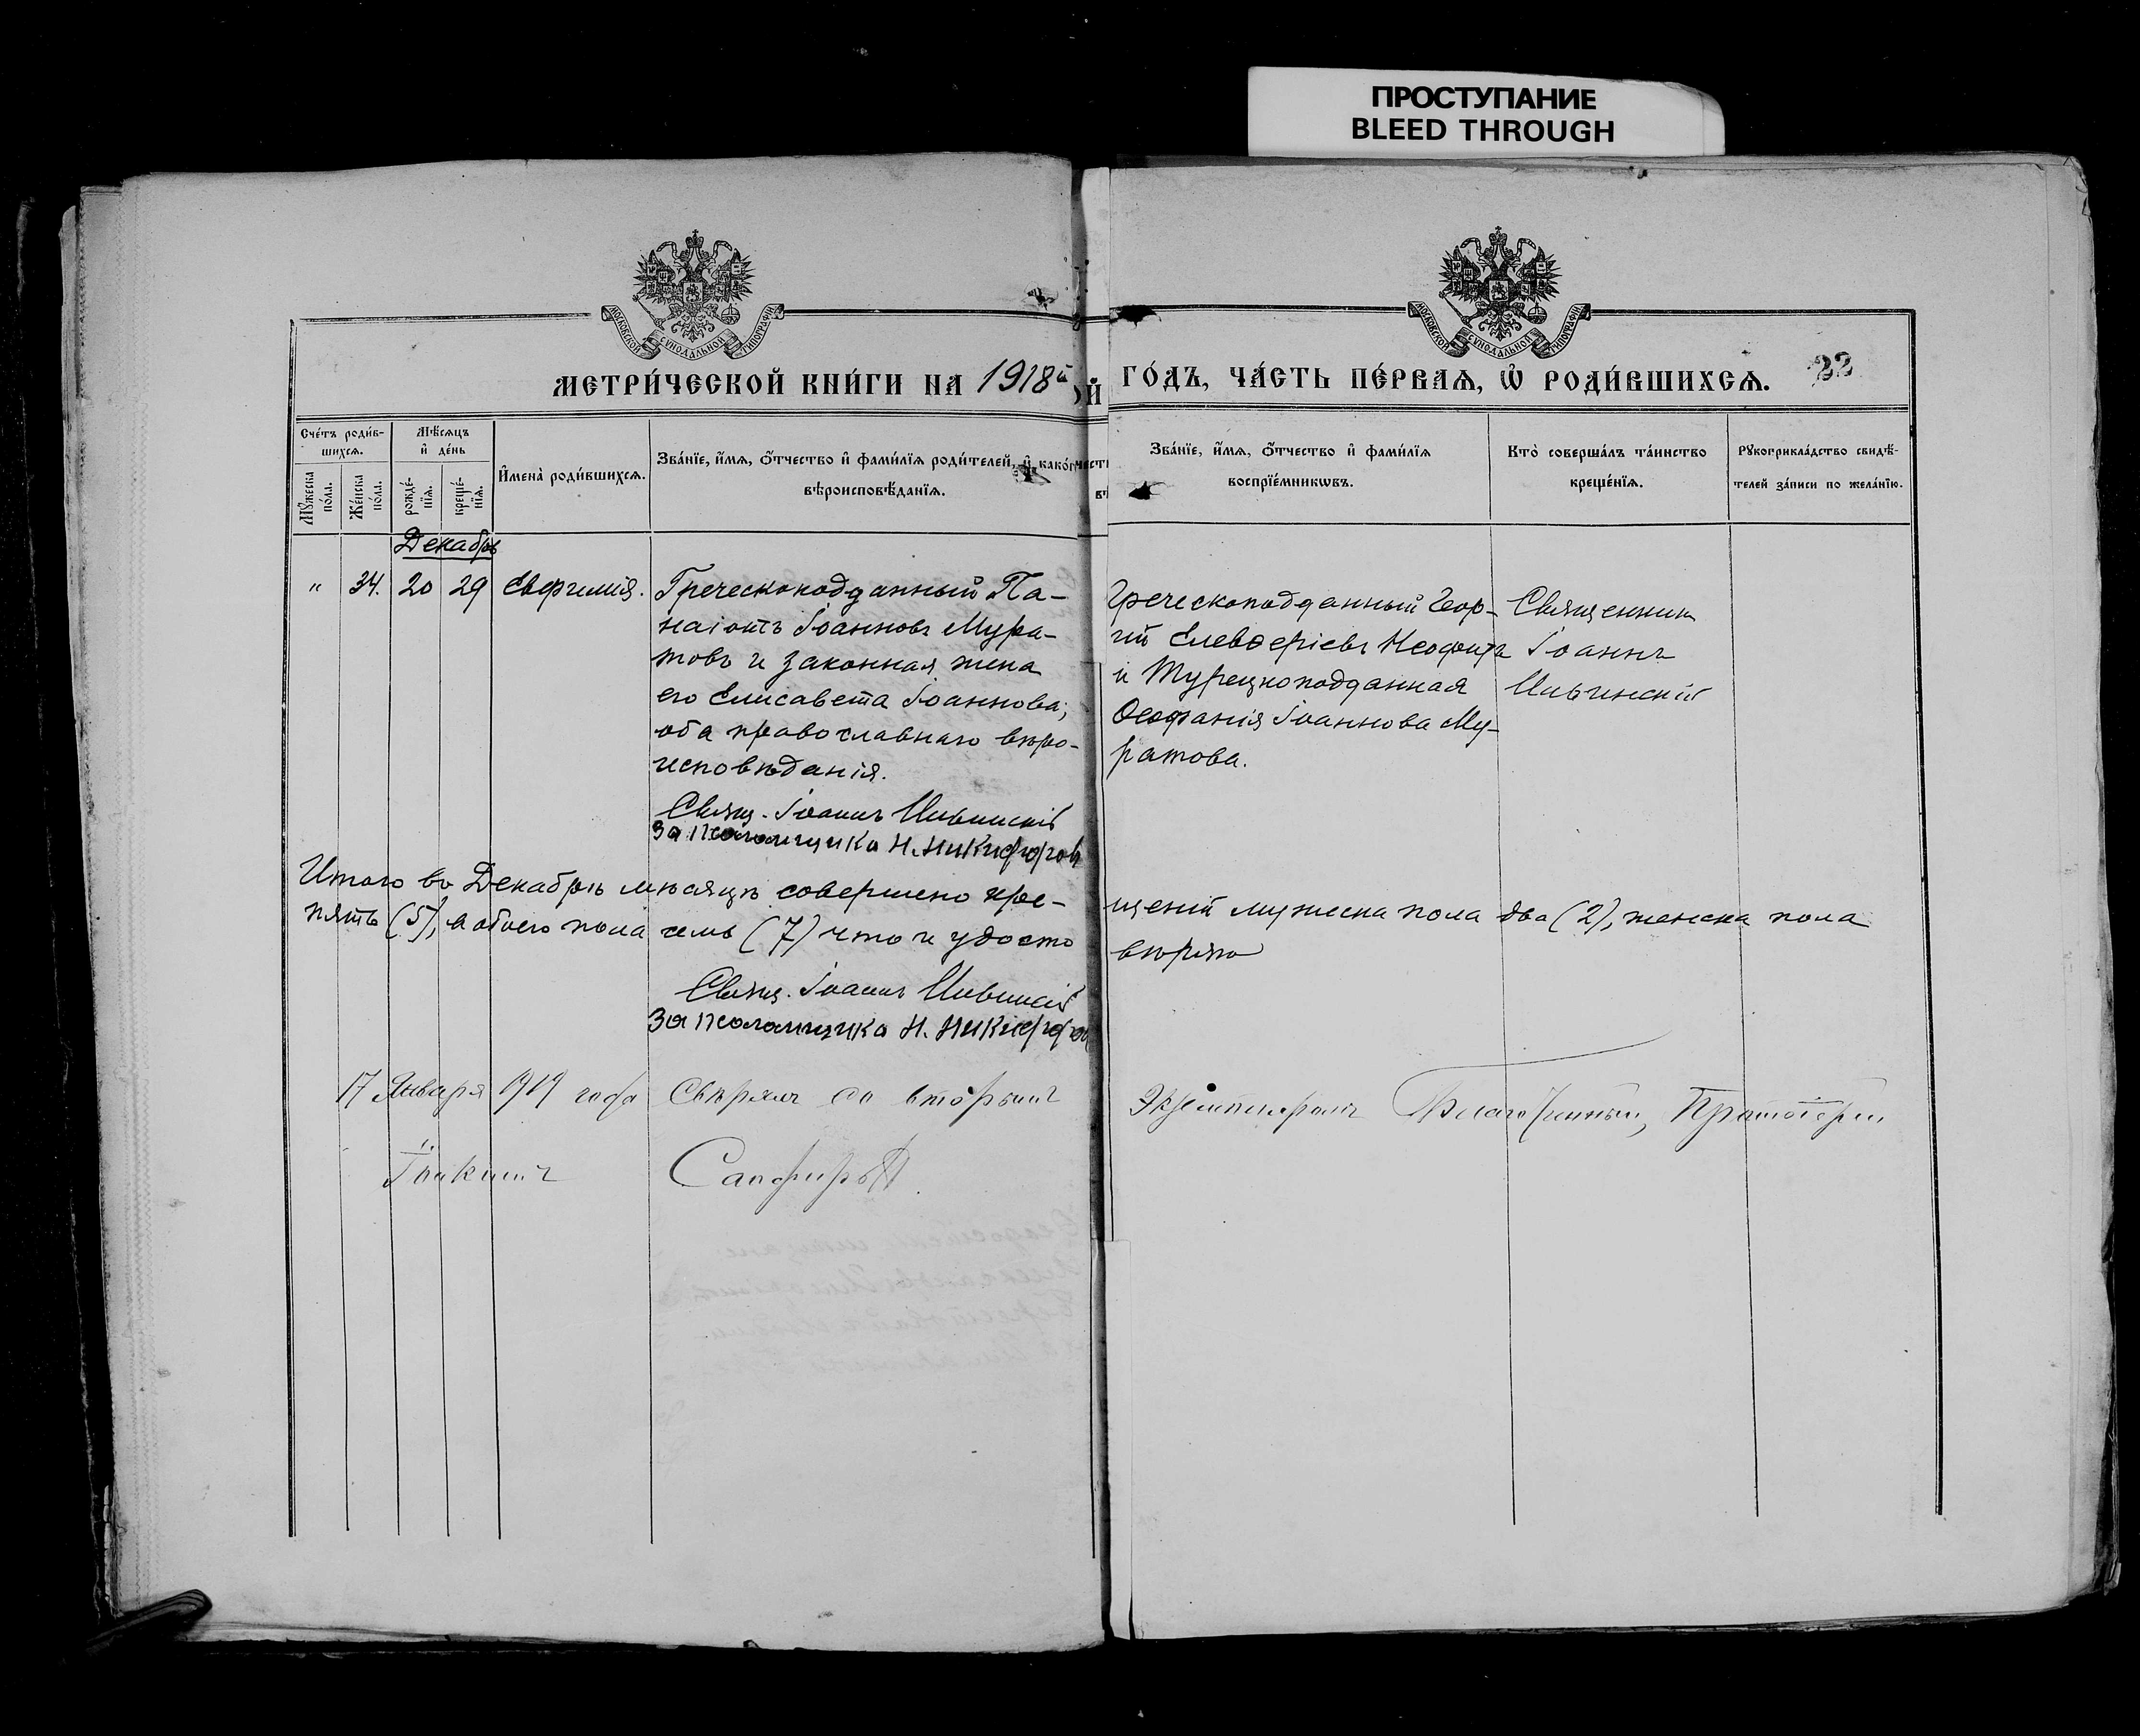 ПРОСТУПАНИЕ
BLEED THROUGH
МОСКОВСКОЙ СѴНОДАЛЬНОЙ ТИПОГРАФІИ
МОСКОВСКОЙ СѴНОДАЛЬНОЙ ТИПОГРАФІИ
МЕТРИ́ЧЕСКОЙ КНИ́ГИ НА 1918й
ГО́ДЪ, ЧА́СТЬ ПЕ́РВАѦ, Ѡ҆ РОДИ́ВШИХСѦ. 22
Сче́тъ роди́в-
шихсѧ.
Мѣ́сѧцъ
и҆ де́нь
Мꙋ́жеска
по́ла.
Же́нска
по́ла.
рожде́-
нїѧ.
креще́-
нїѧ.
И҆мена̀ роди́вшихсѧ.
Зва́нїе, и҆́мѧ, ѻ҆́тчество и҆ фами́лїѧ роди́телей, и҆ како́гѡ
вѣроисповѣ́данїѧ.
Зва́нїе, и҆́мѧ, ѻ҆́тчество и҆ фами́лїѧ
воспрїе́мникѡвъ.
Кто̀ соверша́лъ та́инство
креще́нїѧ.
Рꙋкоприкла́дство свидѣ́-
телей за́писи по жела́нїю.
Декабрь
„ 34. 20 29 Евфимія.
Греческоподданный Па-
наіотъ Іоанновъ Мура-
товъ и законная жена
его Елисавета Іоаннова;
оба православнаго вѣро-
исповѣданія.
Свящ. Іоаннъ
За псаломщика Н. Никифоров
Греческоподданный Геор-
гій Елевѳеріевъ Неофитъ
и Турецкоподданная
Ѳеофанія Іоаннова Му-
ратова.
Священникъ
Іоаннъ
Итого во Декабрѣ мѣсяцѣ совершено кре-
щеній мужеска пола два (2), женска пола
пять (5), а обоего пола семь (7) что и удосто
вѣряю
Свящ. Іоаннъ
За псаломщика Н. Никифоров
17 Января 1919 года Свѣрялъ со вторымъ
экземпляромъ Благочинный, Протоіерей
Іоакимъ Сапфировъ